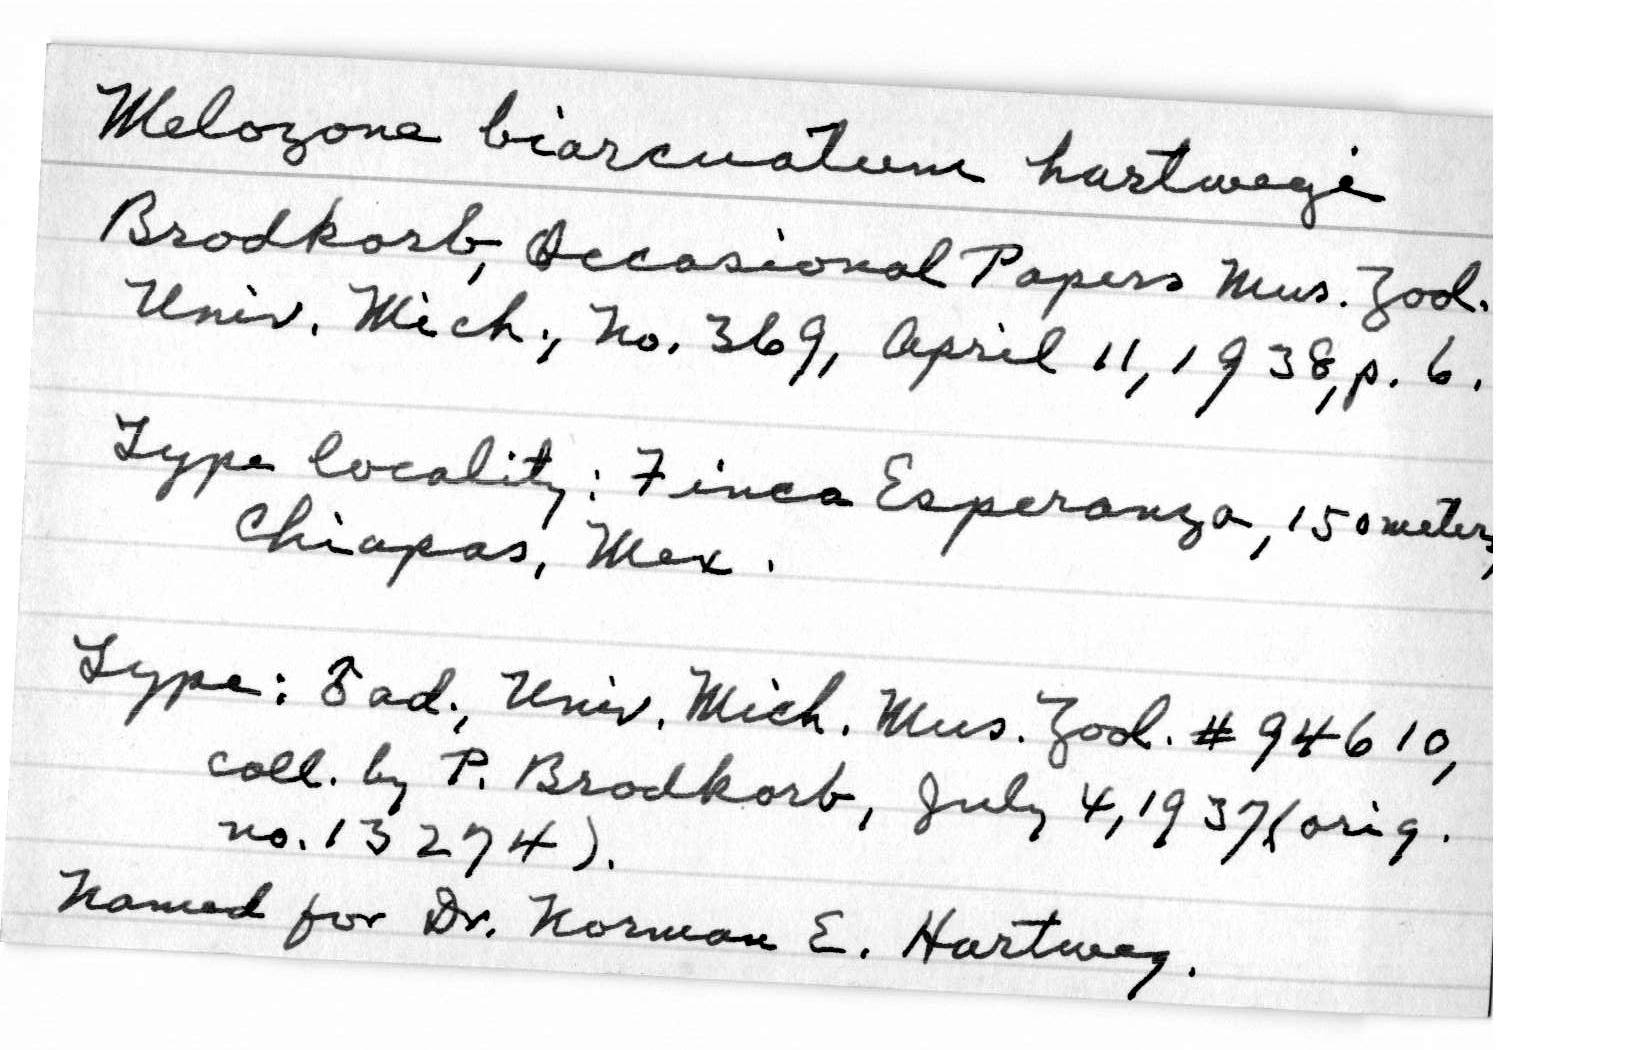 Melozone biarcuatum hartwegi
Brodkorb, Occasional Papers Mus. Zool.
Univ. Mich., No. 369, April 11, 1938, p. 6.
Type locality: Finca Esperanza, 150 meters,
Chiapas, Mex.
Type: ♂ ad., Univ. Mich. Mus. Zool. # 94610,
coll. by P. Brodkorb, July 4, 1937 (orig.
no. 13274).
Named for Dr. Norman E. Hartweg.